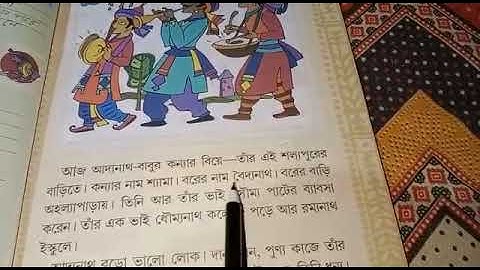 আজ আদ্যনাথ-বাবুর কন্যার বিয়ে—তাঁর এই শল্যপুরের
বাড়িতে। কন্যার নাম শ্যামা। বরের নাম বৈদ্যনাথ। বরের বাড়ি
অহল্যাপাড়ায়। তিনি আর তাঁর ভাই সৌম্য পাটের ব্যাবসা
করেন। তাঁর এক ভাই ধৌম্যনাথ কলে পড়ে আর রম্যনাথ
ইস্কুলে।
আদ্যনাথ বড়ো ভালো লোক। দান ন, পুণ্য কাজে তাঁর